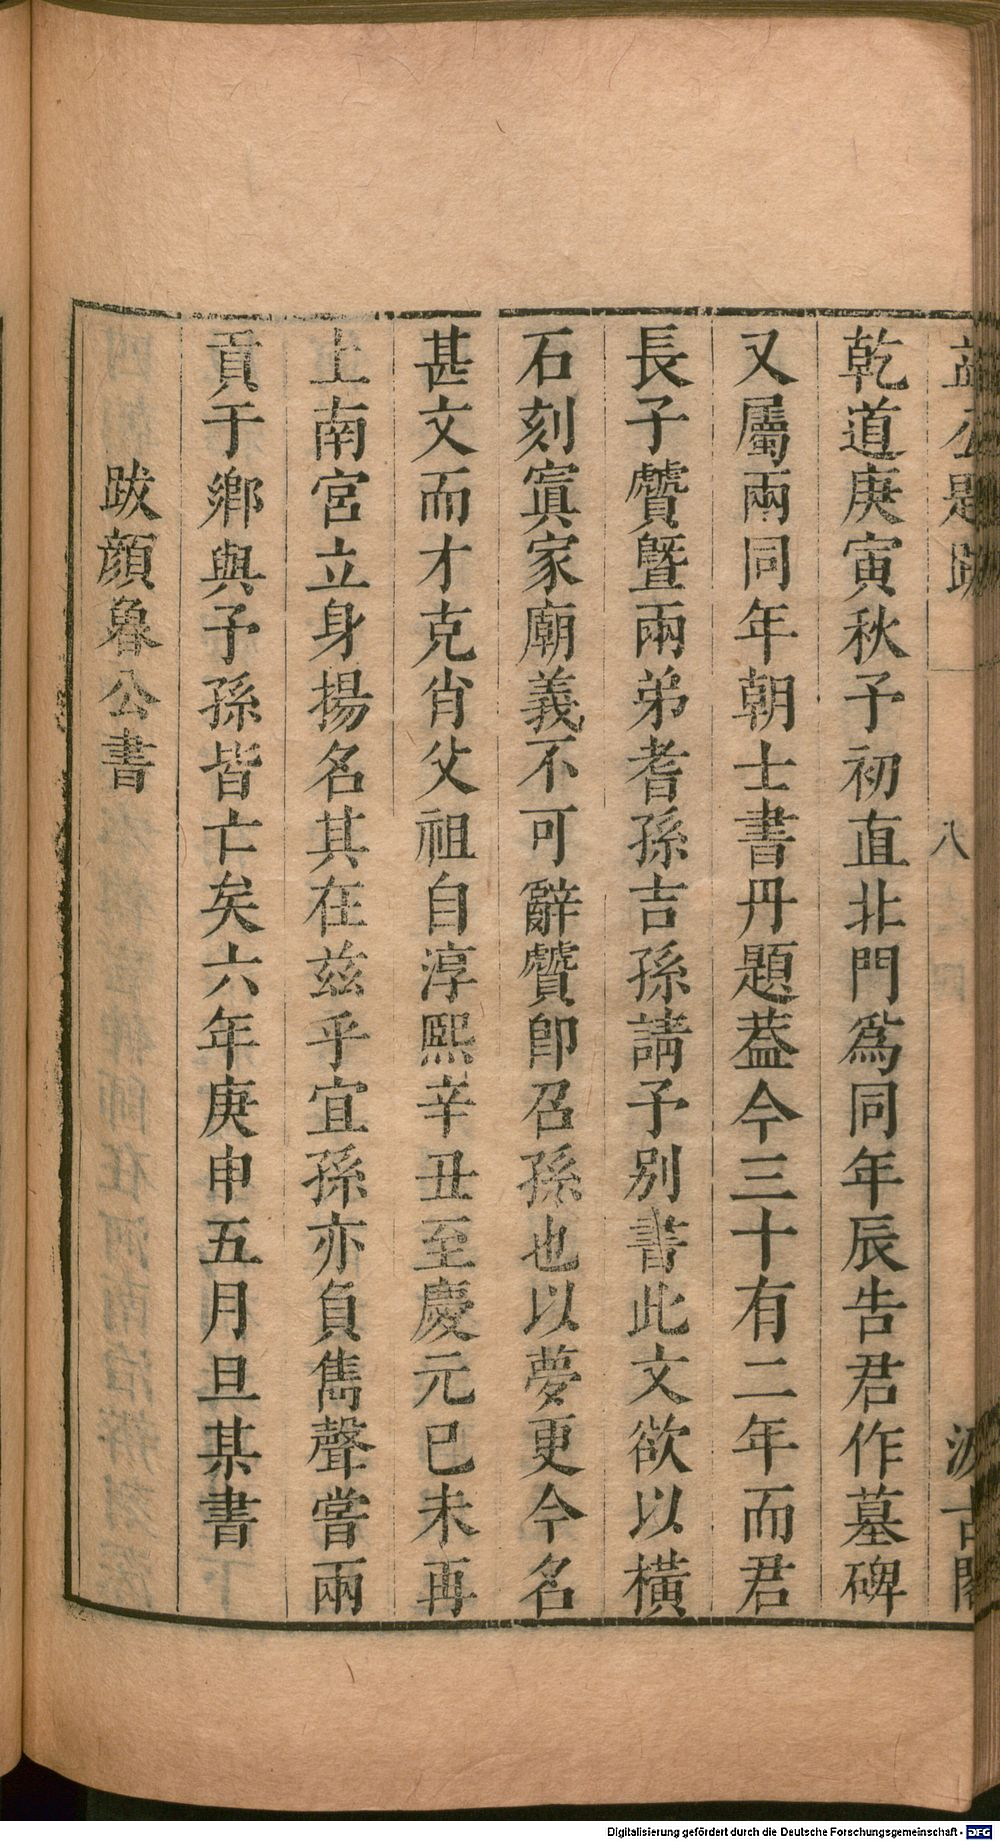 益公題跋 八 汲古閣
乾道庚寅秋予初直北門爲同年辰告君作墓碑
又屬兩同年朝士書丹題蓋今三十有二年而君
長子贊曁兩弟耆孫吉孫請予別書此文欲以橫
石刻寘家廟義不可辭贊卽召孫也以夢更今名
甚文而才克肖父祖自淳熙辛丑至慶元巳未再
上南宮立身揚名其在茲乎宜孫亦負雋聲嘗兩
貢于鄉與子孫皆亡矣六年庚申五月旦某書
跋顔魯公書
Digitalisierung gefördert durch die Deutsche Forschungsgemeinschaft - DFG